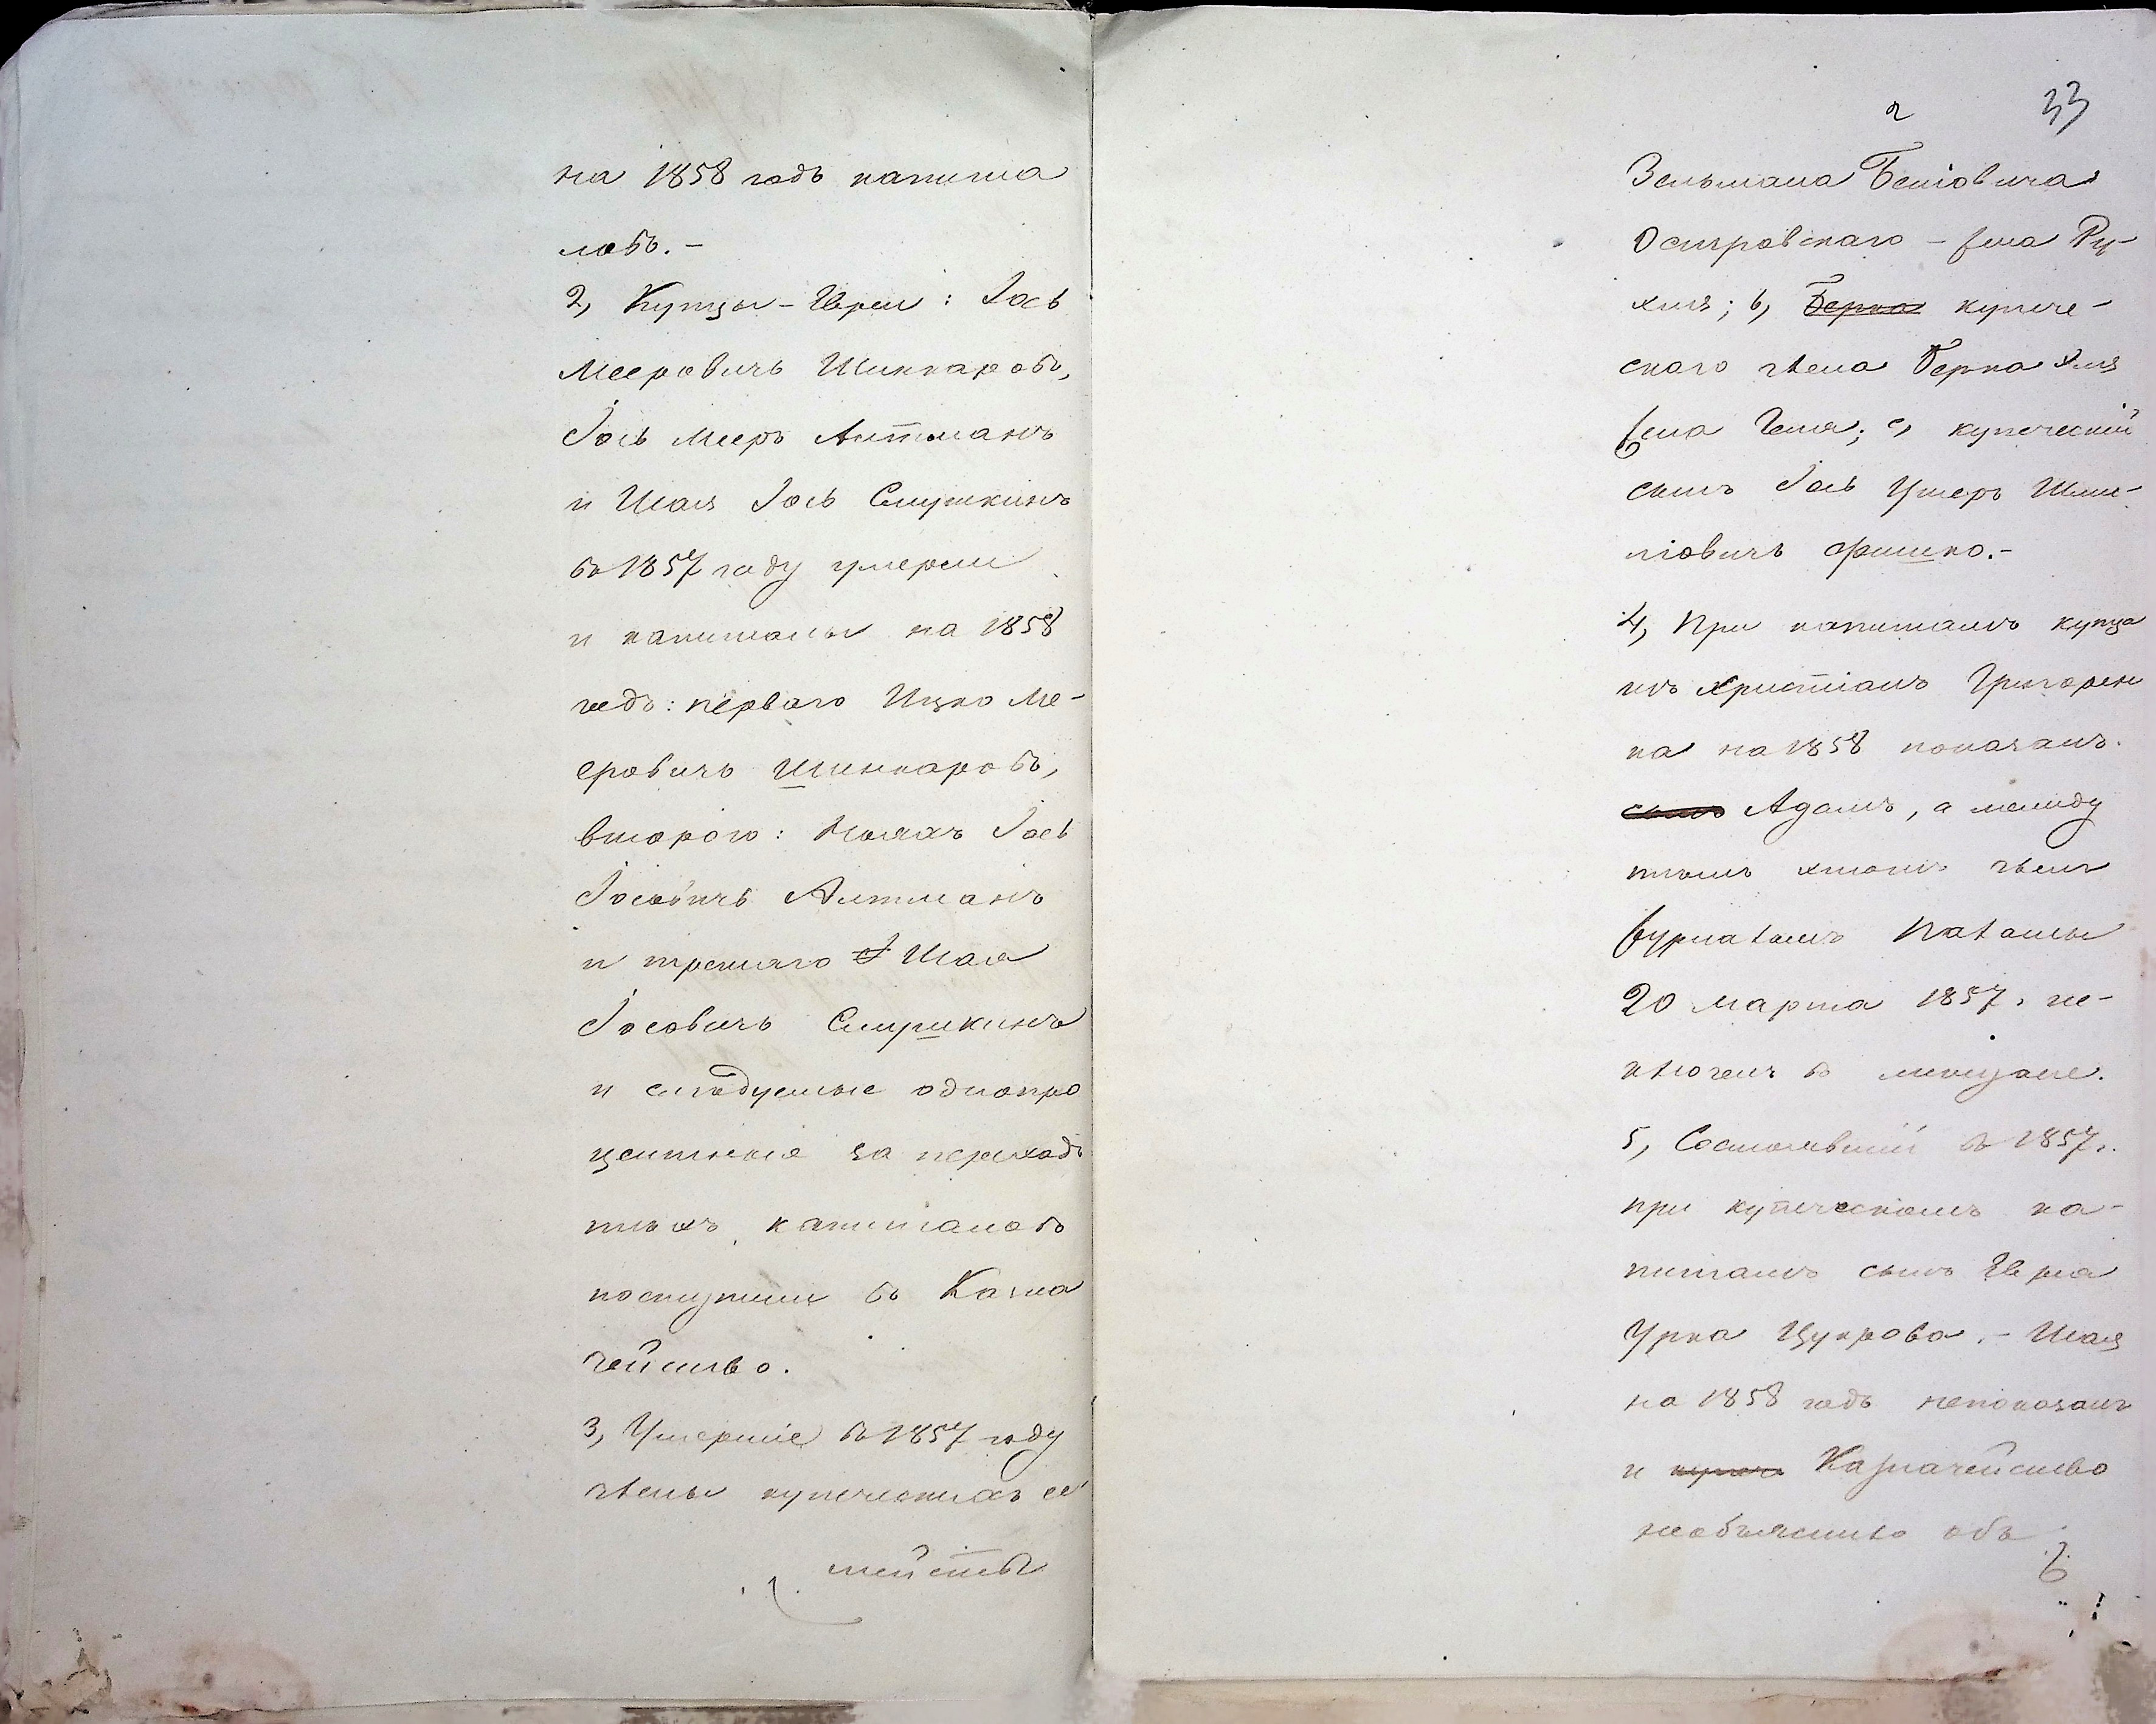 на 1858 годъ капита
ловъ. -
2, Купцы - Евреи: Іось
Мееровичъ Шинкаровъ,
Іось Мееръ Алтманъ
и Шая Іось Слушкинъ
въ 1857 году умерли
и капиталы на 1858
годъ: перваго Ицко Ме-
еровичъ Шинкаровъ,
втораго: Іось
Іосевичъ Алтманъ
и третьяго Шая
Іосовичъ Слушкинъ
и слѣдуемые однопро
центные за переходъ
тѣхъ капиталовъ
поступили въ Казна
чейство.
3, Умершіе въ 1857 году
члены купеческихъ се
мействъ
33
Зельмана
Островскаго - жена Ру-
хля; b, Берка купече-
скаго члена Берка
жена Геня; c, купеческій
сынъ Іось Ушеръ Шмы-
ліовичъ Фишко. -
4, При капиталѣ купца
изъ христіанъ Григорен
ка на 1858 показанъ
сынъ Адамъ, а между
тѣмъ этотъ членъ
журналомъ Палаты
20 марта 1857 г. ис-
ключенъ въ мѣщане.
5, Состоявшій въ 1857 г.
при купеческомъ ка-
питалѣ сынъ Еврея
Урка Цукрова. - Шая
на 1858 годъ непоказанъ
и Казначейство
необъяснило объ